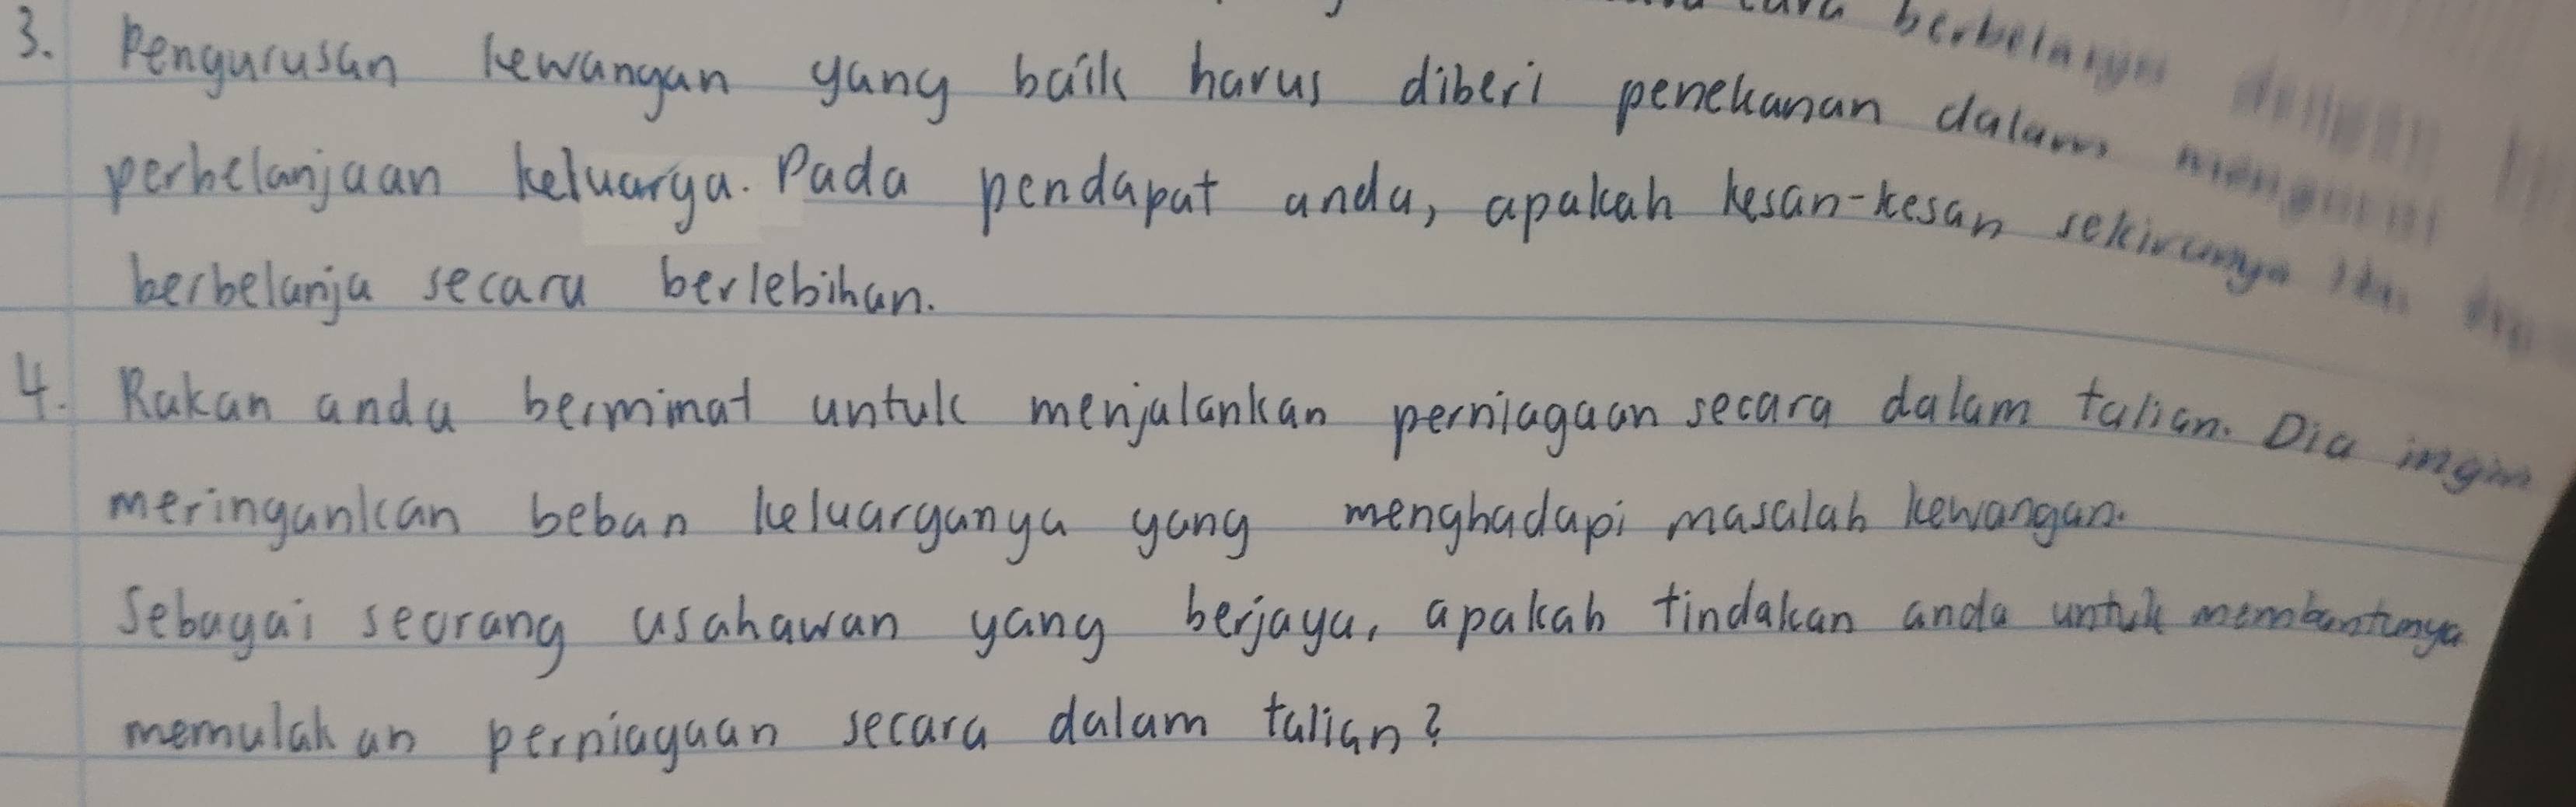 berbelanja
3. Pengurusan kewangan yang baik harus diberi penekanan dalam
perbelanjaan keluarga. Pada pendapat anda, apakah kesan-kesan sekiranya
berbelanja secara berlebihan.
4. Rakan anda berminat untuk menjalankan perniagaan secara dalam talian. Dia ingin
meringankan beban keluarganya yang menghadapi masalah kewangan.
Sebagai seorang usahawan yang berjaya, apakah tindakan anda untuk membantunya
memulakan perniagaan secara dalam talian?